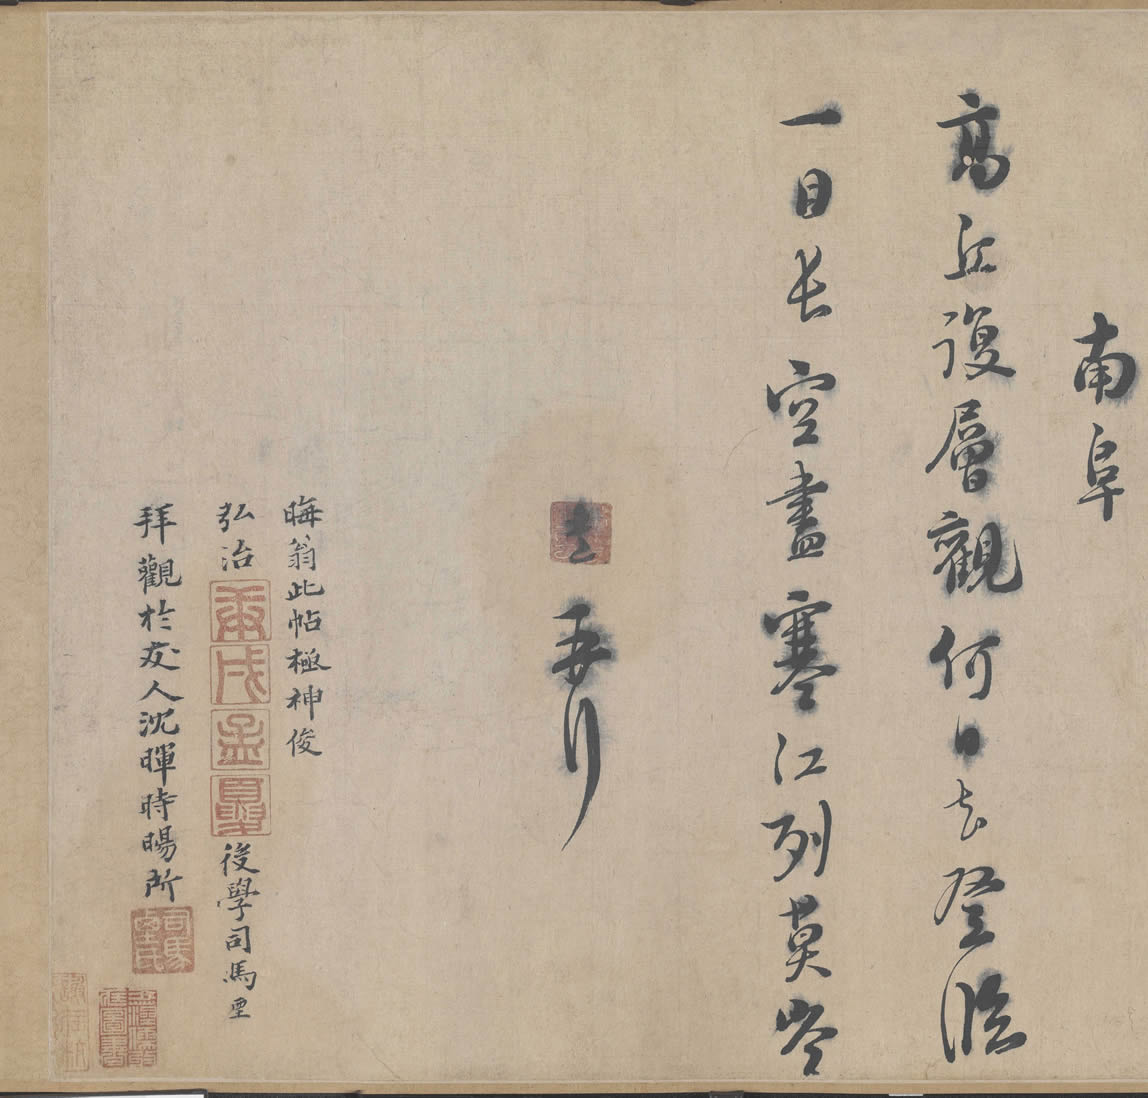 南阜
高丘復層觀何日去登臨
一目長空盡寒江列莫岑
晦翁此帖極神俊
弘治庚戌孟夏後學司馬垔
拜觀於友人沈暉時暘所
司馬垔氏